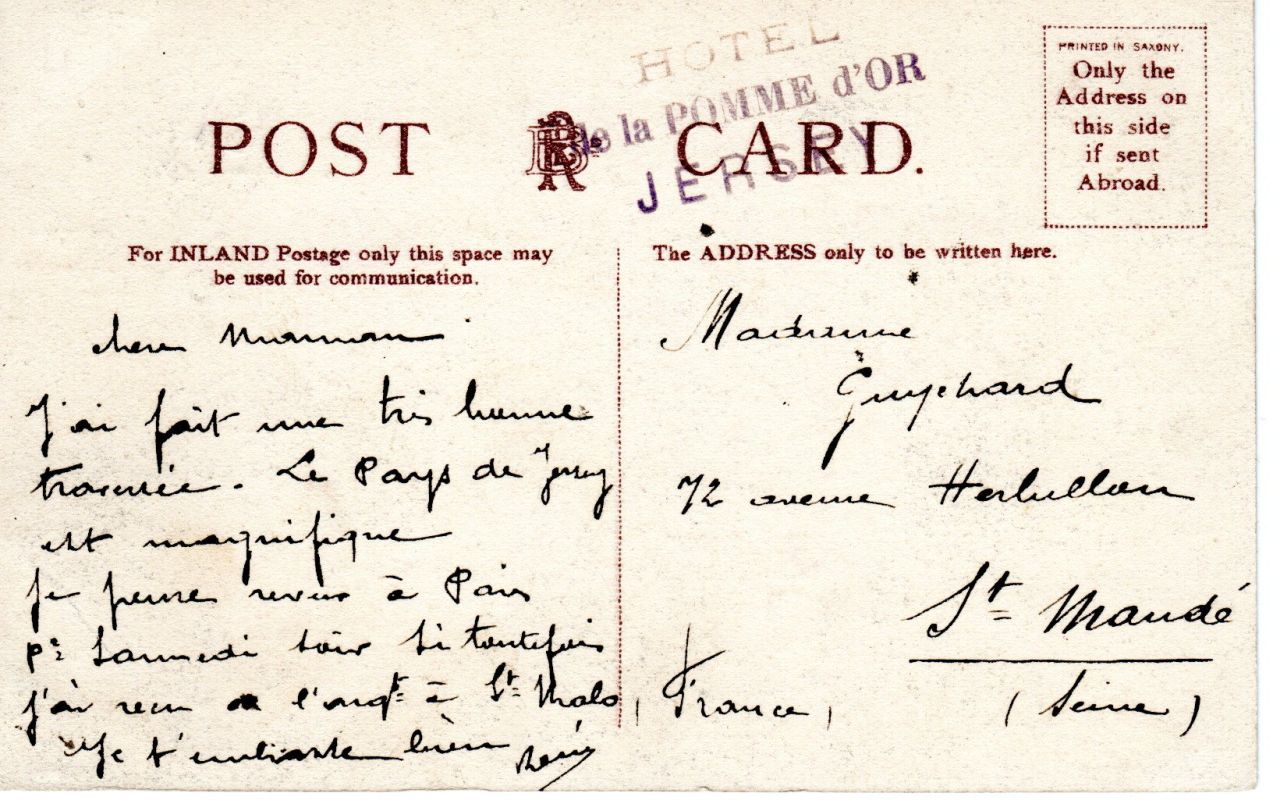 HOTEL
de la POMME d'OR
JERSEY
POST CARD.
PRINTED IN SAXONY.
Only the
Address on
this side
if sent
Abroad.
For INLAND Postage only this space may
be used for communication.
The ADDRESS only to be written here.
chere Maman
J'ai fait une très bonne
traversée. Le Pays de Jersey
est magnifique
je pense à Paris
pr Samedi soir si toutefois
j'ai recu l'argt à St Malo
Je t'embrasse bien
Madame
Guychard
72 avenue Herbillon
St Mandé
France, (Seine)